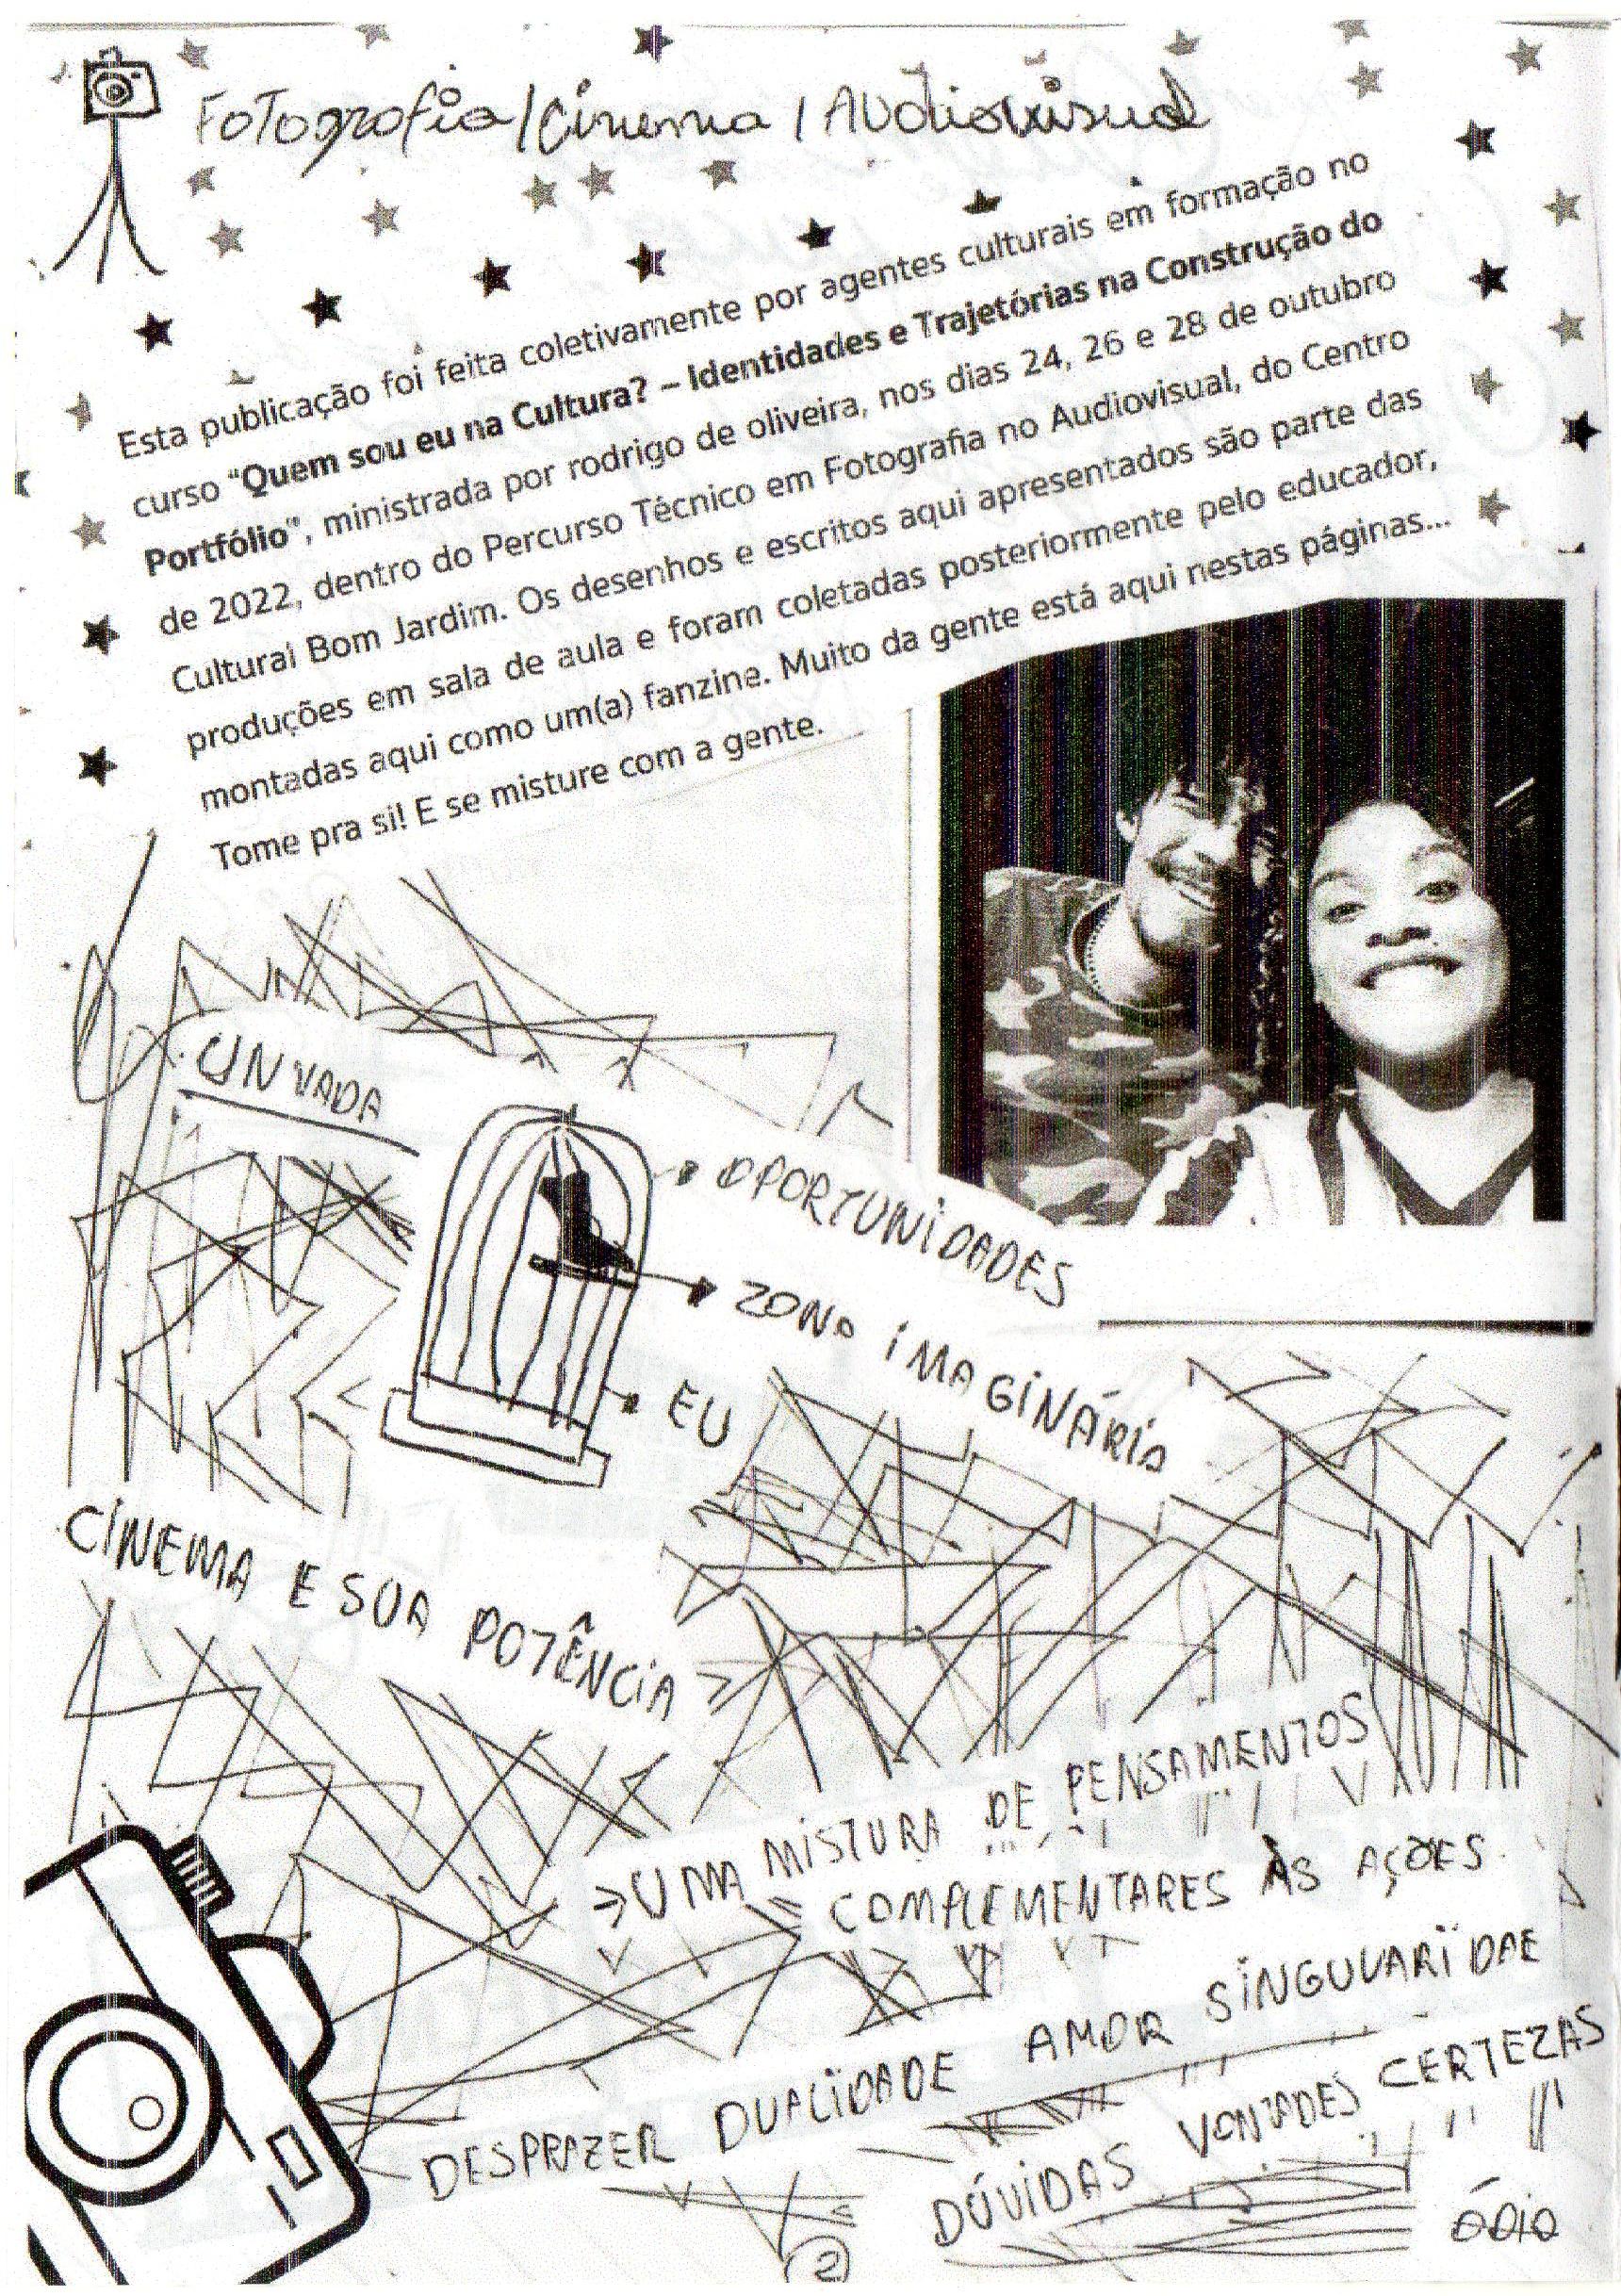 Fotografia / Cinema / Audiovisual
Esta publicação foi feita coletivamente por agentes culturais em formação no
curso "Quem sou eu na Cultura? – Identidades e Trajetórias na Construção do
Portfólio", ministrada por rodrigo de oliveira, nos dias 24, 26 e 28 de outubro
de 2022, dentro do Percurso Técnico em Fotografia no Audiovisual, do Centro
Cultural Bom Jardim. Os desenhos e escritos aqui apresentados são parte das
produções em sala de aula e foram coletadas posteriormente pelo educador,
montadas aqui como um(a) fanzine. Muito da gente está aqui nestas páginas...
Tome pra si! E se misture com a gente.
OPORTUNIDADES
ZONA IMAGINÁRIA
EU
CINEMA E SUA POTÊNCIA
UMA MISTURA DE PENSAMENTOS
COMPLEMENTARES ÀS AÇÕES
DESPRAZER DUALIDADE AMOR SINGULARIDAE
DÚVIDAS VONTADES CERTEZAS
ÓDIO
2